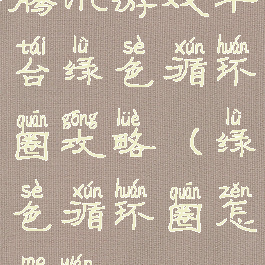 tái lǜ sè xún huán
台绿色循环
quān gōng lüè lǜ
圈攻略(绿
sè xún huán quān zěn
色循环圈怎
me wán